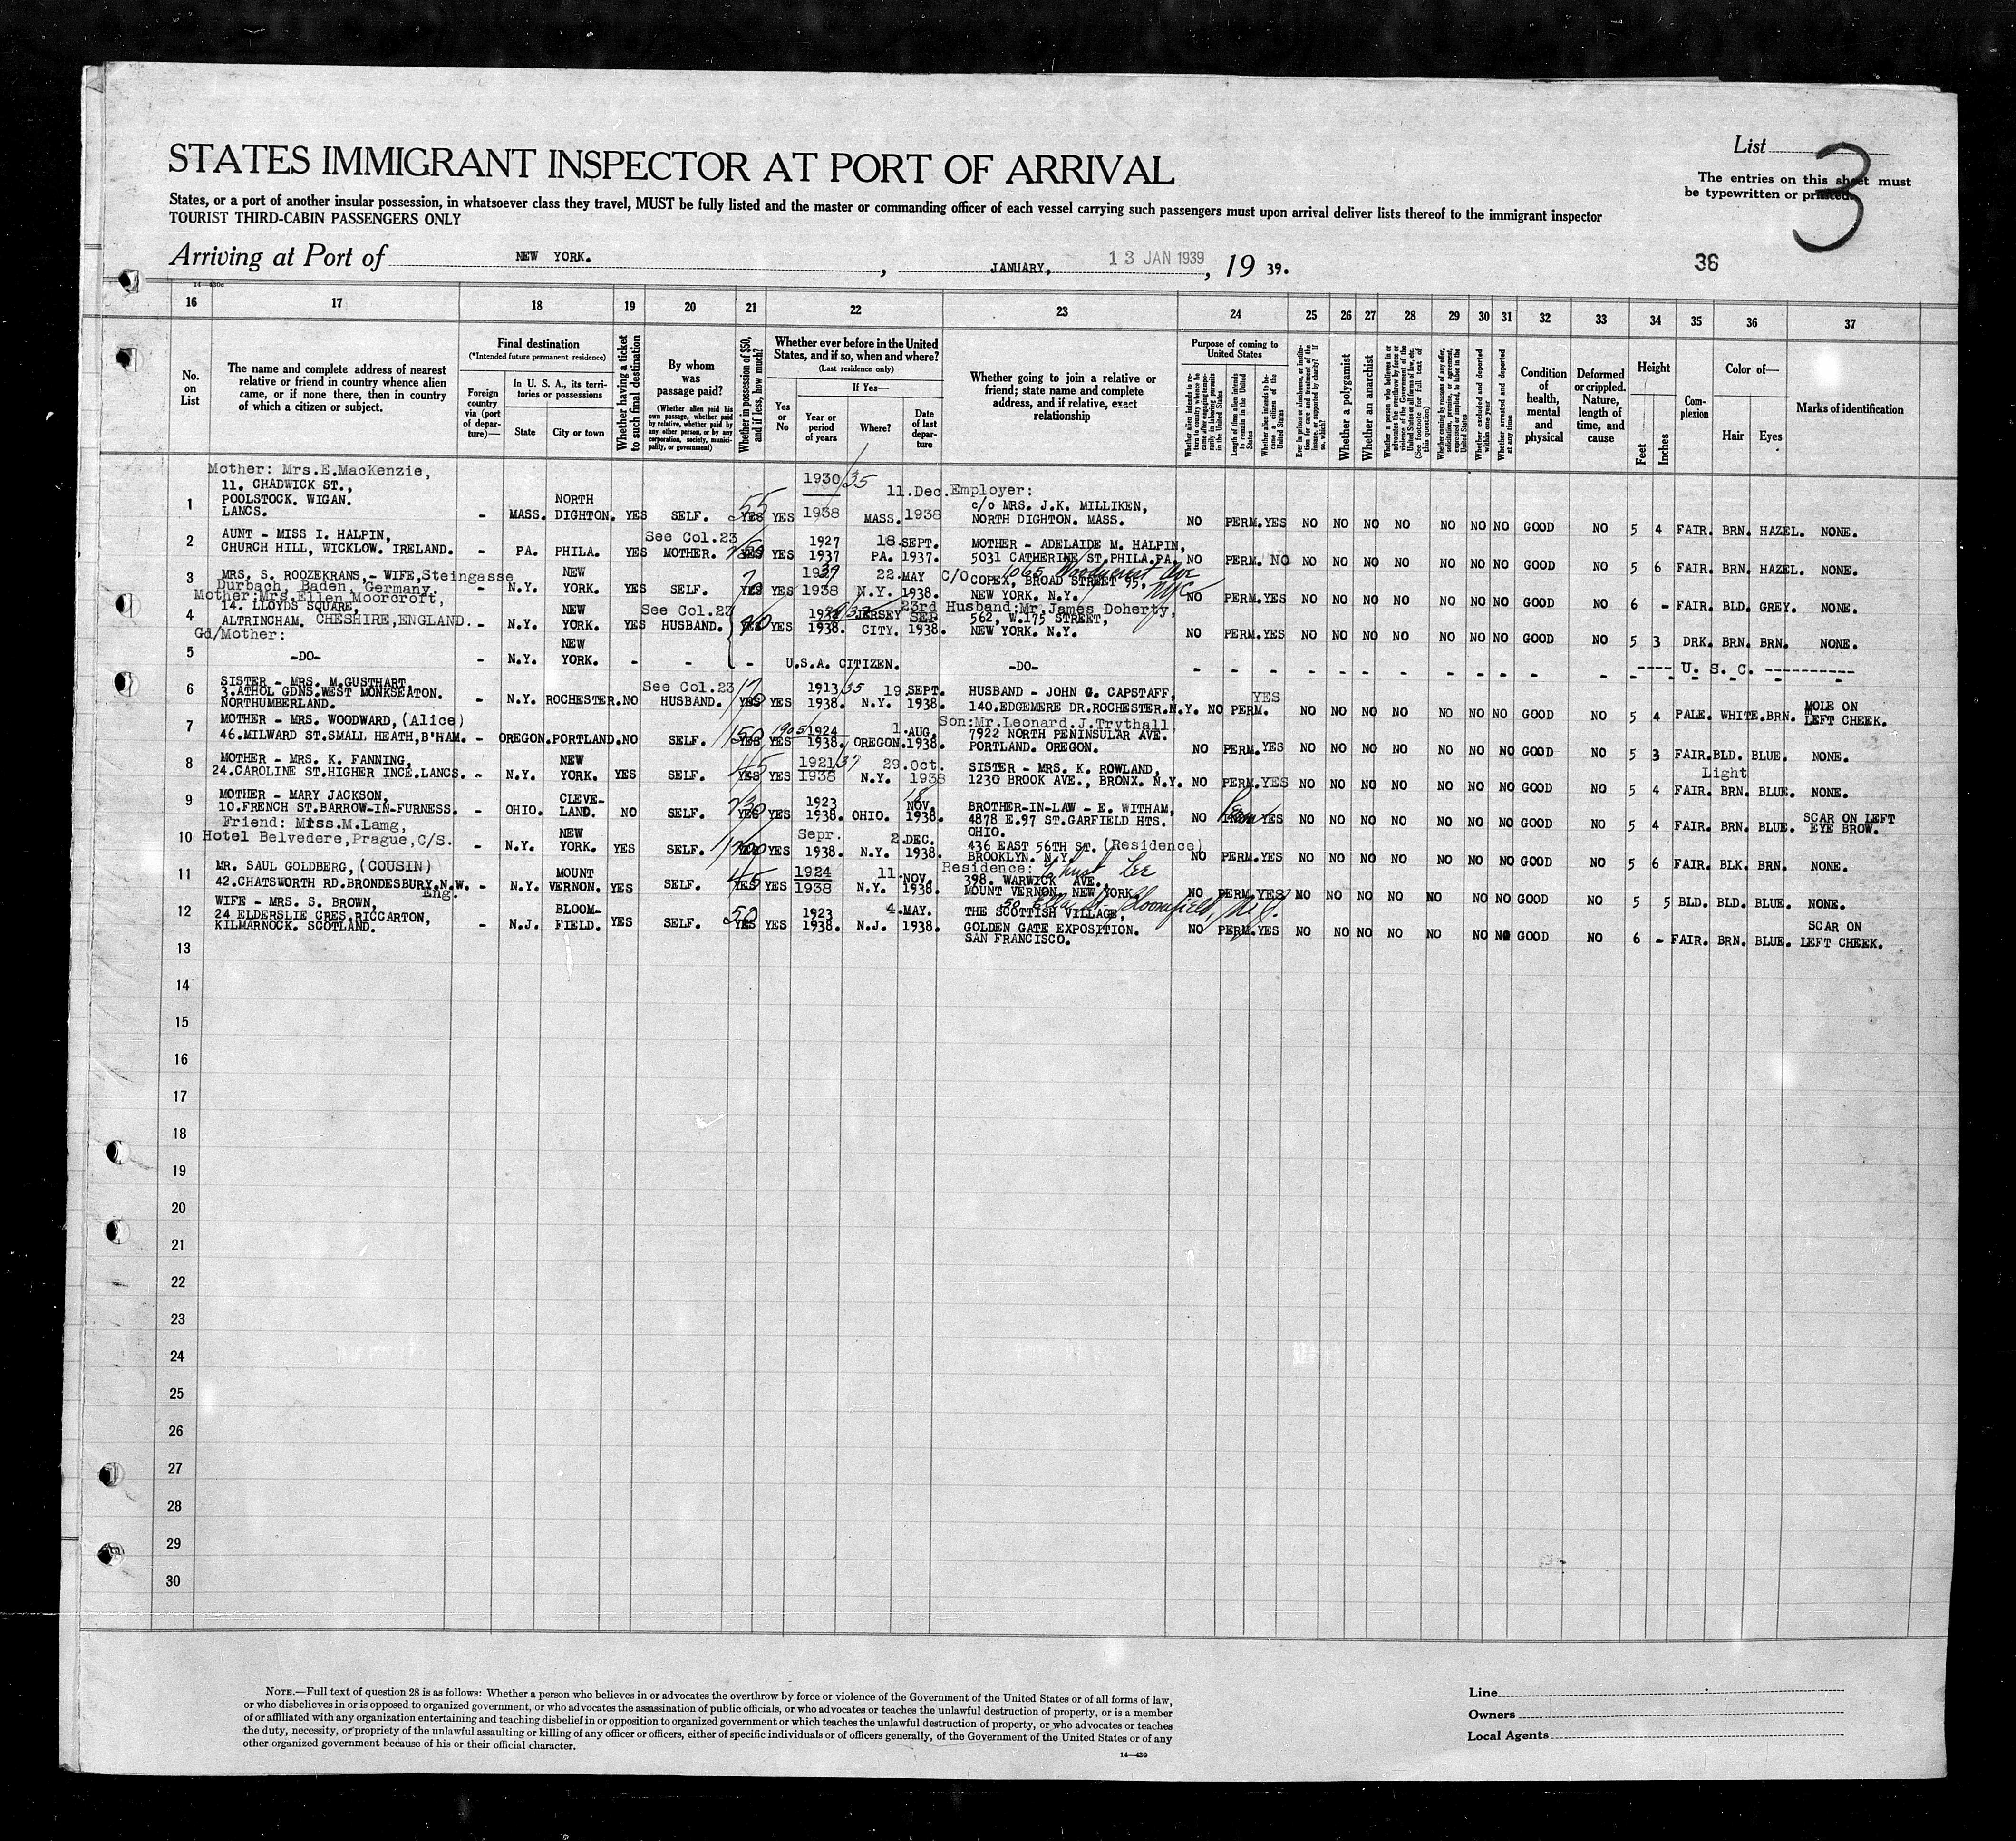 STATES IMMIGRANT INSPECTOR AT PORT OF ARRIVAL
List
3
The entries on this sheet must
be typewritten or printed.
States, or a port of another insular possession, in whatsoever class they travel, MUST be fully listed and the master or commanding officer of each vessel carrying such passengers must upon arrival deliver lists thereof to the immigrant inspector
TOURIST THIRD-CABIN PASSENGERS ONLY
Arriving at Port of NEW YORK. , JANUARY, 13 JAN 1939 , 19 39.
36
14—430c
16 17 18 19 20 21 22 23 24 25 26 27 28 29 30 31 32 33 34 35 36 37
No. on List
The name and complete address of nearest
relative or friend in country whence alien
came, or if none there, then in country
of which a citizen or subject.
Final destination
(*Intended future permanent residence)
Foreign country via (port of departure)—
In U. S. A., its territories or possessions
State
City or town
Whether having a ticket to such final destination
By whom was passage paid?
(Whether alien paid his own passage, whether paid by relative, whether paid by any other person, or by any corporation, society, municipality, or government)
Whether in possession of $50, and if less, how much?
Whether ever before in the United
States, and if so, when and where?
(Last residence only)
Yes or No
If Yes—
Year or period of years
Where?
Date of last departure
Whether going to join a relative or
friend; state name and complete
address, and if relative, exact
relationship
Purpose of coming to United States
Whether alien intends to return to country whence he came after engaging temporarily in laboring pursuits in the United States
Length of time alien intends to remain in the United States
Whether alien intends to become a citizen of the United States
Ever in prison or almshouse, or institution for care and treatment of the insane, or supported by charity? If so, which?
Whether a polygamist
Whether an anarchist
Whether a person who believes in or advocates the overthrow by force or violence of the Government of the United States or all forms of law, etc. (See footnote for full text of this question)
Whether coming by reason of any offer, solicitation, promise, or agreement, expressed or implied, to labor in the United States
Whether excluded and deported within one year
Whether arrested and deported at any time
Condition of health, mental and physical
Deformed or crippled. Nature, length of time, and cause
Height
Feet
Inches
Complexion
Color of—
Hair
Eyes
Marks of identification
Mother: Mrs.E.MacKenzie, 1930/35
11. CHADWICK ST., 11.Dec. Employer:
1 POOLSTOCK. WIGAN. NORTH 55 c/o MRS. J.K. MILLIKEN,
LANCS. - MASS. DIGHTON. YES SELF. YES YES 1938 MASS. 1938 NORTH DIGHTON. MASS. NO PERM. YES NO NO NO NO NO NO NO GOOD NO 5 4 FAIR. BRN. HAZEL. NONE.
2 AUNT - MISS I. HALPIN, See Col.23 1927 18.SEPT. MOTHER - ADELAIDE M. HALPIN,
CHURCH HILL, WICKLOW. IRELAND. - PA. PHILA. YES MOTHER. YES YES 1937 PA. 1937. 5031 CATHERINE ST.PHILA.PA. NO PERM. NO NO NO NO NO NO NO NO GOOD NO 5 6 FAIR. BRN. HAZEL. NONE.
3 MRS. S. ROOZEKRANS,- WIFE,Steingasse NEW 22.MAY C/O COPEX, BROAD STREET 95. 1065 Woodycrest Ave
Durbach, Baden, Germany. - N.Y. YORK. YES SELF. YES YES 1938 N.Y. 1938. NEW YORK. N.Y. NYC NO PERM. YES NO NO NO NO NO NO NO GOOD NO 6 - FAIR. BLD. GREY. NONE.
Mother:Mrs.Ellen Moorcroft,
4 14. LLOYDS SQUARE, NEW See Col.23 JERSEY 23rd SEP. Husband:Mr.James Doherty, 562, W.175 STREET,
ALTRINCHAM. CHESHIRE,ENGLAND. - N.Y. YORK. YES HUSBAND. YES YES 1938. CITY. 1938. NEW YORK. N.Y. NO PERM. YES NO NO NO NO NO NO NO GOOD NO 5 3 DRK. BRN. BRN. NONE.
Gd/Mother:
5 -DO- - N.Y. NEW YORK. - - - U.S.A. CITIZEN. -DO- - - - - - - - - - - - - ---- U. S. C. ----------
6 SISTER - MRS. M.GUSTHART, See Col.23 1913/35 19.SEPT. HUSBAND - JOHN G. CAPSTAFF, YES MOLE ON
3.ATHOL GDNS.WEST MONKSEATON.
NORTHUMBERLAND. - N.Y. ROCHESTER. NO HUSBAND. YES YES 1938. N.Y. 1938. 140.EDGEMERE DR.ROCHESTER.N.Y. NO PERM. NO NO NO NO NO NO NO GOOD NO 5 4 PALE. WHITE. BRN. LEFT CHEEK.
7 MOTHER - MRS. WOODWARD, (Alice) 1905/1924 1.AUG. Son:Mr.Leonard.J.Trythall
7922 NORTH PENINSULAR AVE.
46.MILWARD ST.SMALL HEATH,B'HAM. - OREGON. PORTLAND. NO SELF. 150 YES YES 1938. OREGON. 1938. PORTLAND. OREGON. NO PERM. YES NO NO NO NO NO NO NO GOOD NO 5 3 FAIR. BLD. BLUE. NONE.
8 MOTHER - MRS. K. FANNING, NEW 45 1921/37 29.Oct. SISTER - MRS. K. ROWLAND, Light
24.CAROLINE ST.HIGHER INCE.LANCS. - N.Y. YORK. YES SELF. YES YES 1938 N.Y. 1938 1230 BROOK AVE., BRONX. N.Y. NO PERM. YES NO NO NO NO NO NO NO GOOD NO 5 4 FAIR. BRN. BLUE. NONE.
9 MOTHER - MARY JACKSON, CLEVE- 1923 18 NOV. BROTHER-IN-LAW - E. WITHAM, SCAR ON LEFT
10.FRENCH ST.BARROW-IN-FURNESS. - OHIO. LAND. NO SELF. YES YES 1938. OHIO. 1938. 4878 E.97 ST.GARFIELD HTS. NO Perm YES NO NO NO NO NO NO NO GOOD NO 5 4 FAIR. BRN. BLUE. EYE BROW.
OHIO.
Friend: Miss.M.Lamg,
10 Hotel Belvedere,Prague,C/S. - N.Y. NEW YORK. YES SELF. YES YES Sepr. 1938. N.Y. 2.DEC. 1938. 436 EAST 56TH ST. (Residence)
BROOKLYN. N.Y. NO PERM. YES NO NO NO NO NO NO NO GOOD NO 5 6 FAIR. BLK. BRN. NONE.
11 MR. SAUL GOLDBERG, (COUSIN) MOUNT 45 1924 11.NOV. Residence:
398. WARWICK AVE.,
42.CHATSWORTH RD.BRONDESBURY.N.W. Eng. - N.Y. VERNON. YES SELF. YES YES 1938 N.Y. 1938. MOUNT VERNON. NEW YORK. NO PERM. YES NO NO NO NO NO NO NO GOOD NO 5 5 BLD. BLD. BLUE. NONE.
12 WIFE - MRS. S. BROWN, BLOOM- 50 1923 4.MAY. Bloomfield, N.J.
THE SCOTTISH VILLAGE, SCAR ON
24 ELDERSLIE CRES.RICCARTON,
KILMARNOCK. SCOTLAND. - N.J. FIELD. YES SELF. YES YES 1938. N.J. 1938. GOLDEN GATE EXPOSITION. NO PERM. YES NO NO NO NO NO NO NO GOOD NO 6 - FAIR. BRN. BLUE. LEFT CHEEK.
SAN FRANCISCO.
13
14
15
16
17
18
19
20
21
22
23
24
25
26
27
28
29
30
NOTE.—Full text of question 28 is as follows: Whether a person who believes in or advocates the overthrow by force or violence of the Government of the United States or of all forms of law,
or who disbelieves in or is opposed to organized government, or who advocates the assassination of public officials, or who advocates or teaches the unlawful destruction of property, or is a member
of or affiliated with any organization entertaining and teaching disbelief in or opposition to organized government or which teaches the unlawful destruction of property, or who advocates or teaches
the duty, necessity, or propriety of the unlawful assaulting or killing of any officer or officers, either of specific individuals or of officers generally, of the Government of the United States or of any
other organized government because of his or their official character.
14—430
Line
Owners
Local Agents